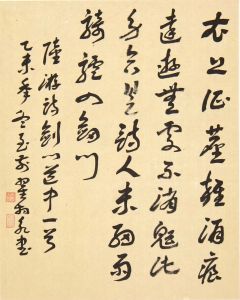 衣上征塵雜酒痕
遠遊無處不消魂此
身合是詩人未細雨
騎驢入劍門
陸游詩劍門道中一首
乙未年冬 書